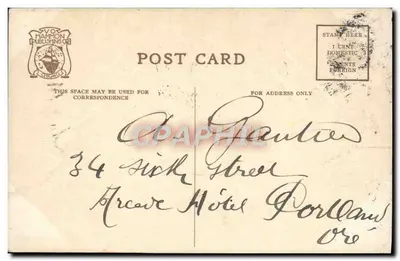 V.O.
HAMMON
PUB. CO.
CHICAGO
POST CARD
STAMP HERE
1 CENT
DOMESTIC
2 CENTS
FOREIGN
THIS SPACE MAY BE USED FOR
CORRESPONDENCE
FOR ADDRESS ONLY
A Gautier
34 sixth street
Arcade Hôtel Portland
Ore